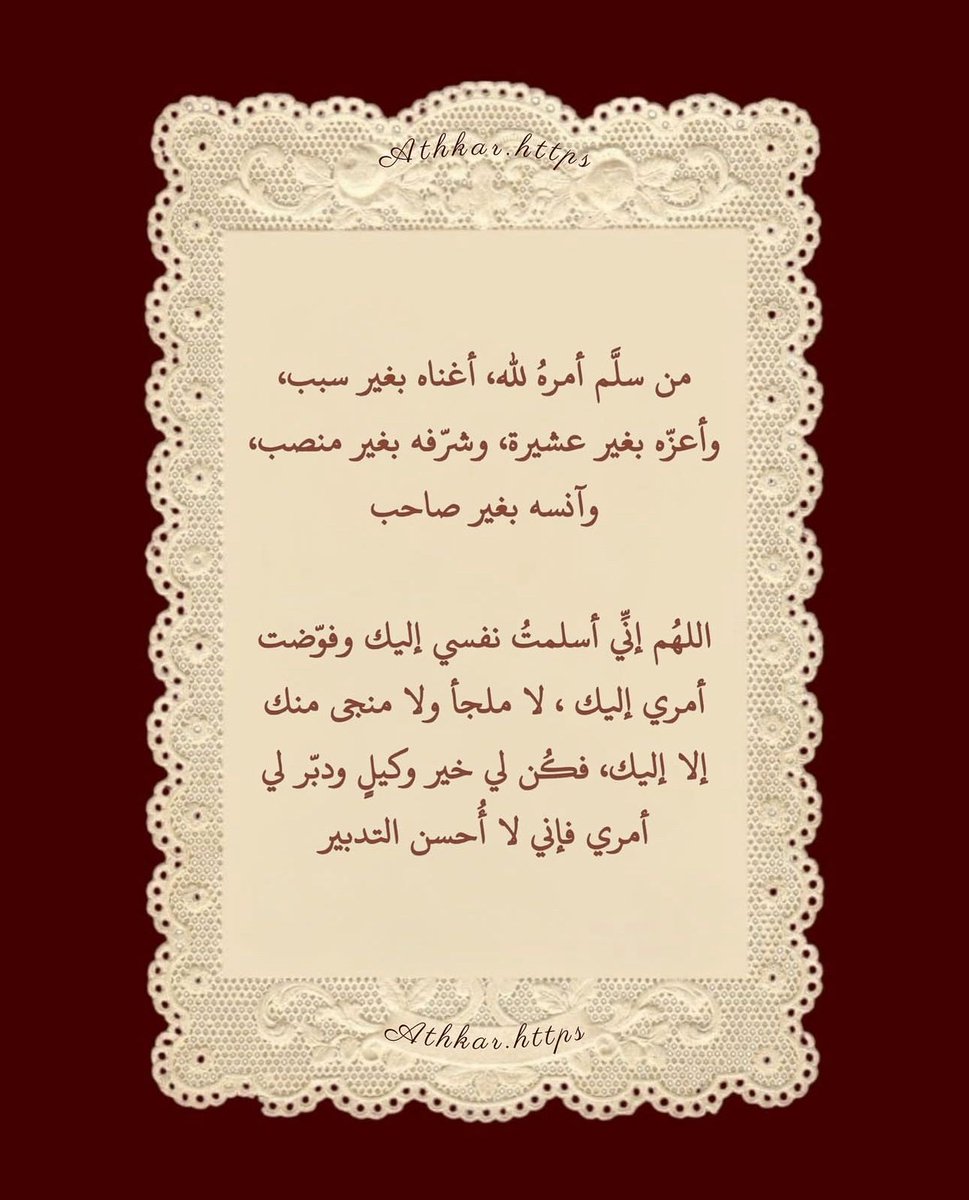 Athkar.https
من سلَّم أمرهُ لله، أغناه بغير سبب،
وأعزّه بغير عشيرة، وشرّفه بغير منصب،
وآنسه بغير صاحب
اللهُم إنِّي أسلمتُ نفسي إليك وفوّضت
أمري إليك ، لا ملجأ ولا منجى منك
إلا إليك، فكُن لي خير وكيلٍ ودبّر لي
أمري فإني لا أُحسن التدبير
Athkar.https